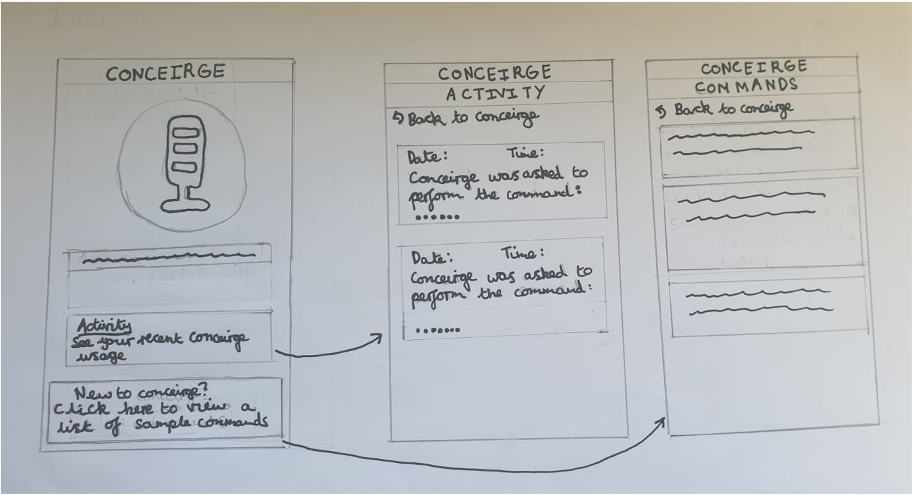 CONCEIRGE
Activity
See your recent Conceirge
usage
New to conceirge?
Click here to view a
list of sample commands
CONCEIRGE
ACTIVITY
Back to conceirge
Date: Time:
Conceirge was asked to
perform the command:
......
Date: Time:
Conceirge was asked to
perform the command:
.......
CONCEIRGE
COMMANDS
Back to conceirge